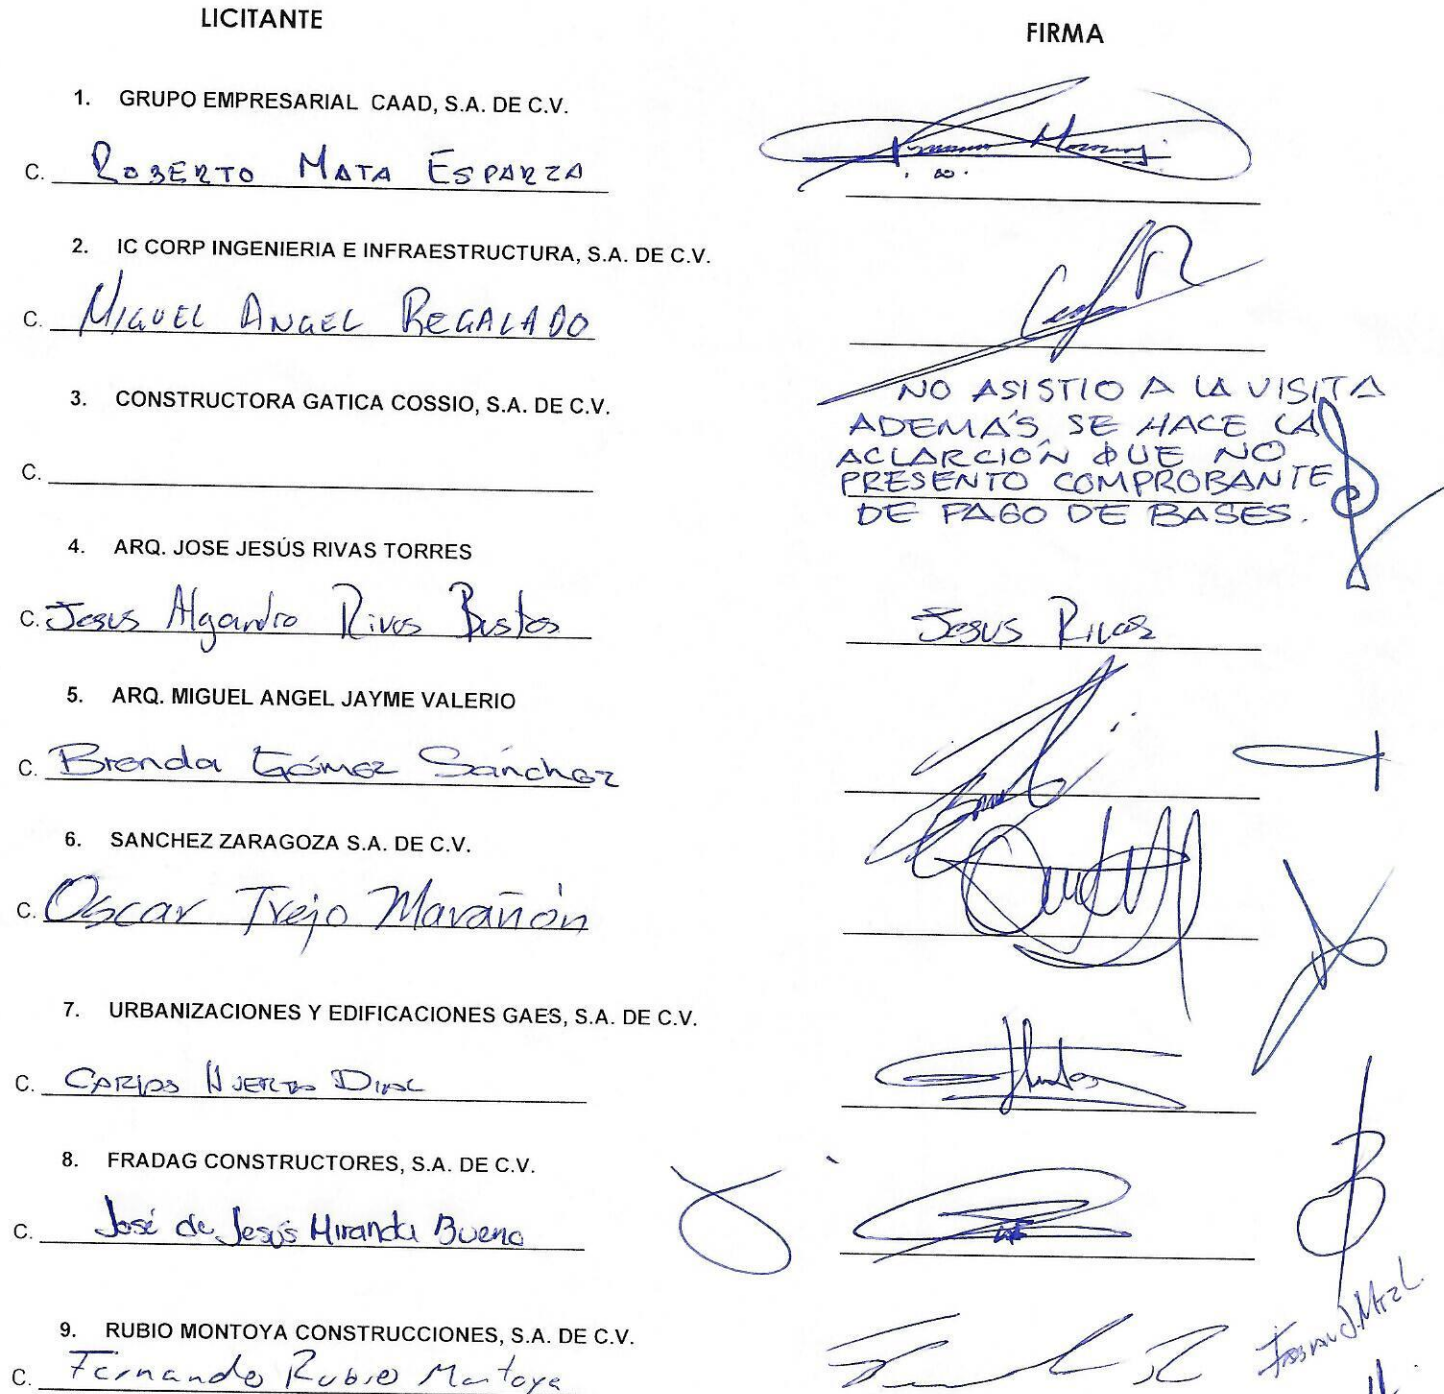 LICITANTE
FIRMA
1. GRUPO EMPRESARIAL CAAD, S.A. DE C.V.
C. ROBERTO MATA ESPARZA
2. IC CORP INGENIERIA E INFRAESTRUCTURA, S.A. DE C.V.
C. MIGUEL ANGEL REGALADO
3. CONSTRUCTORA GATICA COSSIO, S.A. DE C.V.
C.
NO ASISTIO A LA VISITA
ADEMÁS SE HACE LA
ACLARCIÓN QUE NO
PRESENTO COMPROBANTE
DE PAGO DE BASES.
4. ARQ. JOSE JESÚS RIVAS TORRES
C. Jesus Alejandro Rivas Bustos
Jesus Rivas
5. ARQ. MIGUEL ANGEL JAYME VALERIO
C. Brenda Gómez Sánchez
6. SANCHEZ ZARAGOZA S.A. DE C.V.
C. Oscar Trejo Marañón
7. URBANIZACIONES Y EDIFICACIONES GAES, S.A. DE C.V.
C. CARLOS HUERTA DIAZ
8. FRADAG CONSTRUCTORES, S.A. DE C.V.
C. José de Jesús Miranda Bueno
9. RUBIO MONTOYA CONSTRUCCIONES, S.A. DE C.V.
C. Fernando Rubio Montoya